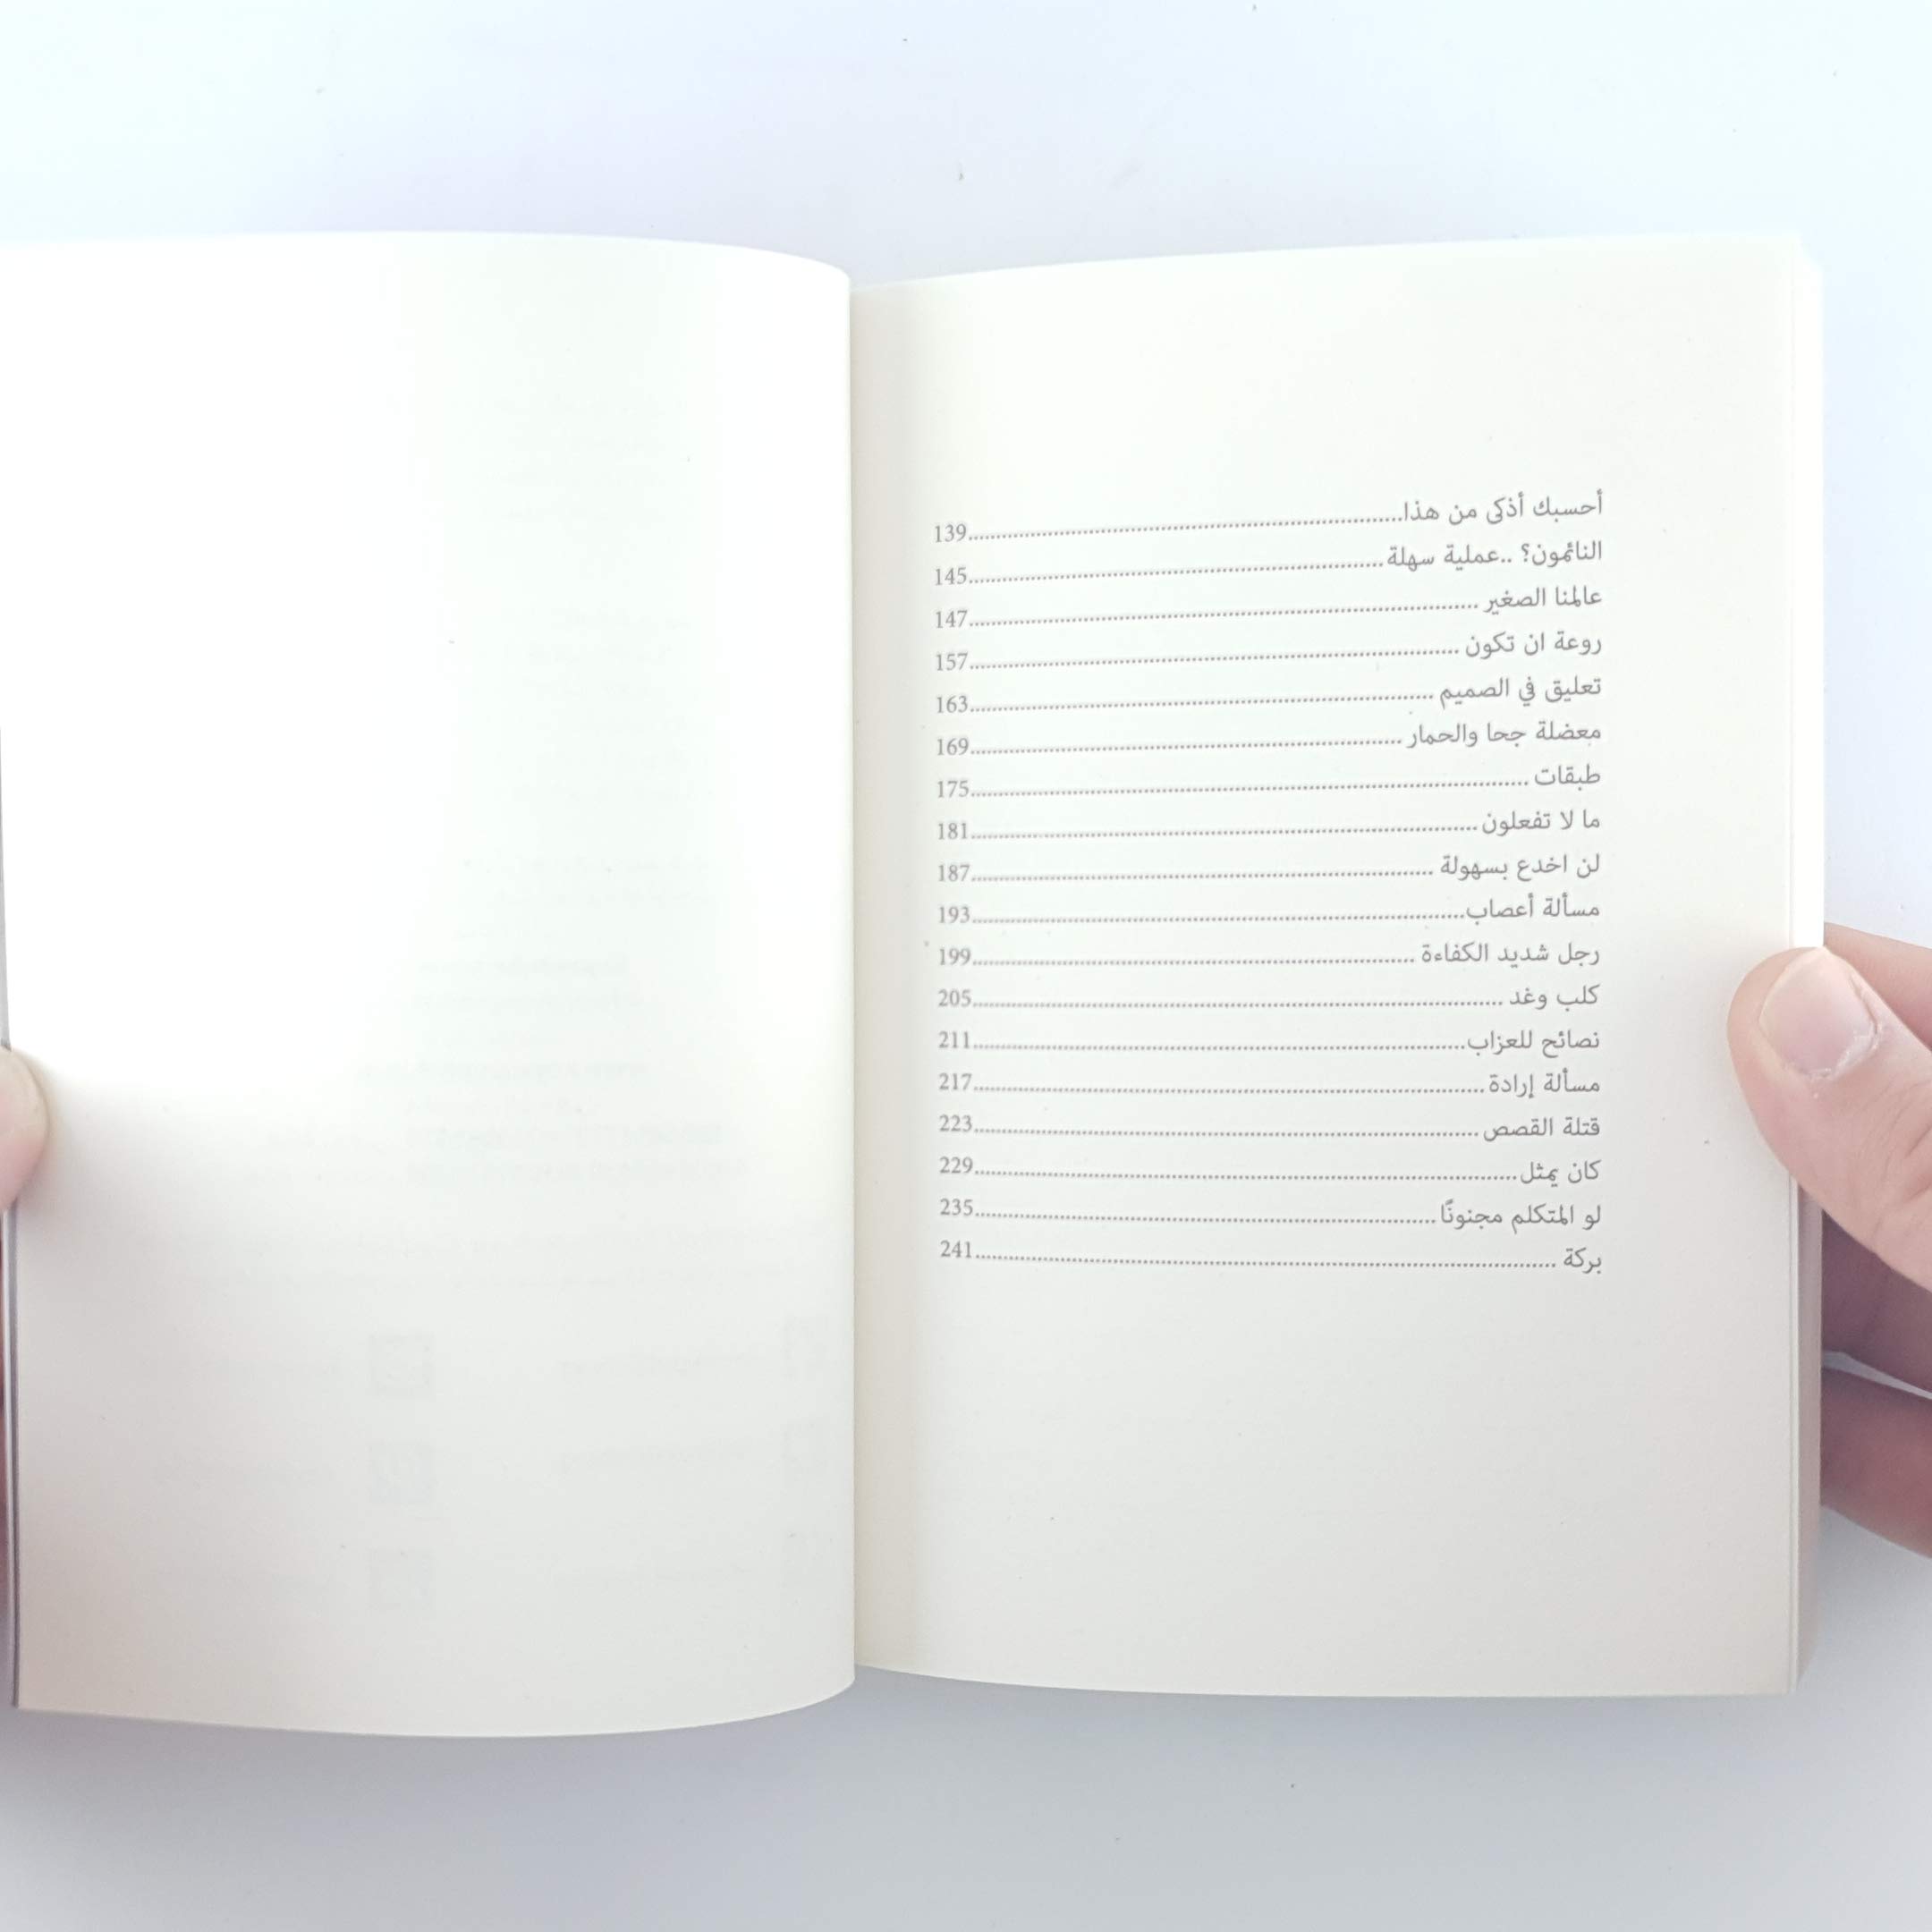 أحسبك أذكى من هذا.....139
النائمون؟ ..عملية سهلة.....145
عالمنا الصغير .....147
روعة ان تكون .....157
تعليق في الصميم .....163
معضلة جحا والحمار .....169
طبقات .....175
ما لا تفعلون.....181
لن اخدع بسهولة .....187
مسألة أعصاب.....193
رجل شديد الكفاءة .....199
كلب وغد .....205
نصائح للعزاب.....211
مسألة إرادة.....217
قتلة القصص .....223
كان يمثل.....229
لو المتكلم مجنونًا.....235
بركة .....241